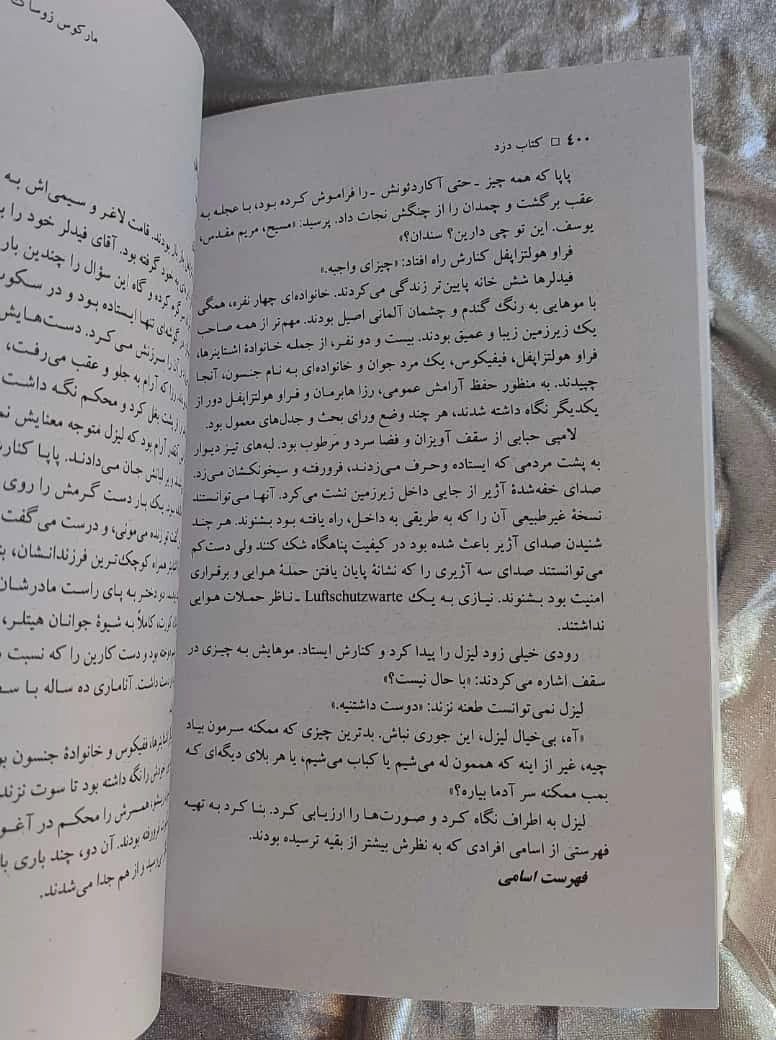 ۴۰۰ □ کتاب دزد
پاپا که همه چیز ـ حتی آکاردئونش ـ را فراموش کرده بود، با عجله به
عقب برگشت و چمدان را از چنگش نجات داد. پرسید: «مسیح، مریم مقدس،
یوسف. این تو چی دارین؟ سندان؟»
فراو هولتزاپفل کنارش راه افتاد: «چیزای واجبه.»
فیدلرها شش خانه پایین‌تر زندگی می‌کردند. خانواده‌ای چهار نفره، همگی
با موهایی به رنگ گندم و چشمان آلمانی اصیل بودند. مهم‌تر از همه صاحب
یک زیرزمین زیبا و عمیق بودند. بیست و دو نفر، از جمله خانوادهٔ اشتاینرها،
فراو هولتزاپفل، فیفیکوس، یک مرد جوان و خانواده‌ای به نام جنسون، آنجا
چپیدند. به منظور حفظ آرامش عمومی، رزا هابرمان و فراو هولتزاپفل دور از
یکدیگر نگاه داشته شدند، هر چند وضع ورای بحث و جدل‌های معمول بود.
لامپی حبابی از سقف آویزان و فضا سرد و مَرطوب بود. لبه‌های تیز دیوار
به پشت مردمی که ایستاده وحرف می‌زدند، فرورفته و سیخونکشان می‌زد.
صدای خفه‌شدهٔ آژیر از جایی داخل زیرزمین نشت می‌کرد. آنها می‌توانستند
نسخهٔ غیرطبیعی آن را که به طریقی به داخل، راه یافته بود بشنوند. هر چند
شنیدن صدای آژیر باعث شده بود در کیفیت پناهگاه شک کنند ولی دست‌کم
می‌توانستند صدای سه آژیری را که نشانهٔ پایان یافتن حملهٔ هوایی و برقراری
امنیت بود بشنوند. نیازی به یک Luftschutzwarte ـ ناظر حملات هوایی
نداشتند.
رودی خیلی زود لیزل را پیدا کرد و کنارش ایستاد. موهایش به چیزی در
سقف اشاره می‌کردند: «با حال نیست؟»
لیزل نمی‌توانست طعنه نزند: «دوست داشتنیه.»
«آه، بی‌خیال لیزل، این جوری نباش. بدترین چیزی که ممکنه سرمون بیاد
چیه، غیر از اینه که هممون له می‌شیم یا کباب می‌شیم، یا هر بلای دیگه‌ای که
بمب ممکنه سر آدما بیاره؟»
لیزل به اطراف نگاه کرد و صورت‌ها را ارزیابی کرد. بنا کرد به تهیه
فهرستی از اسامی افرادی که به نظرش بیشتر از بقیه ترسیده بودند.
فهرست اسامی
مارکوس زوساک
بودند. قامت لاغر و سیمی‌اش به
به خود گرفته بود. آقای فیدلر خود را
گره کرده و گاه این سؤال را چندین بار
تنها ایستاده بود و در سکوت
را سرزنش می‌کرد. دست‌هایش
که آرام به جلو و عقب می‌رفت،
از پشت بغل کرد و محکم نگه داشت
آرام بود که لیزل متوجه معنایش
لبانش جان می‌دادند. پاپا کنارش
یک بار دست گرمش را روی
تو زنده می‌مونی، و درست می‌گفت
همراه کوچک‌ترین فرزندانشان،
دو دختر به پای راست مادرشان
کاملاً به شیوهٔ جوانان هیتلر،
بود و دست کارین را که نسبت
داشت. آناماری ده ساله با
فیفیکوس و خانوادهٔ جنسون
را نگه داشته بود تا سوت نزند
همسرش را محکم در آغوش
فرورفته بودند. آن دو، چند باری
و از هم جدا می‌شدند.